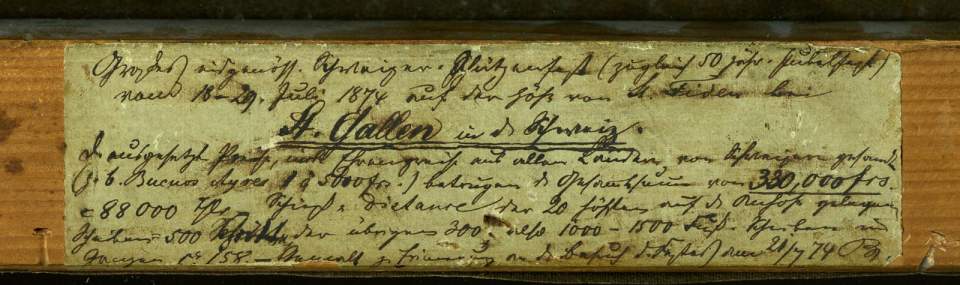 Großes eidgenöss. Schweizer-Schützenfest (zugleich 50 jähr. Jubelfest)
vom 18-29. Juli 1874 auf der Höhe von St. Fiden bei
St. Gallen in d. Schweiz.
d. ausgesetzt. Preise, inkl. Ehrenpreise aus allen Ländern von Schweizern gesandt
(z. b. Buenos Ayres 1 à 5000 frs.) betrugen d. Gesamtsumme von 330,000 frs
= 88000 Thlr. Schieß-Distance der 20 höchsten auf d. Anhöhe gelegenen
Scheiben 500 Schritt, der übrigen 300, also 1000-1500 Fuß. Scheiben im
Ganzen 158. - Gemalt z. Erinnerung an d. Besuch d. Festes am 21/7 74